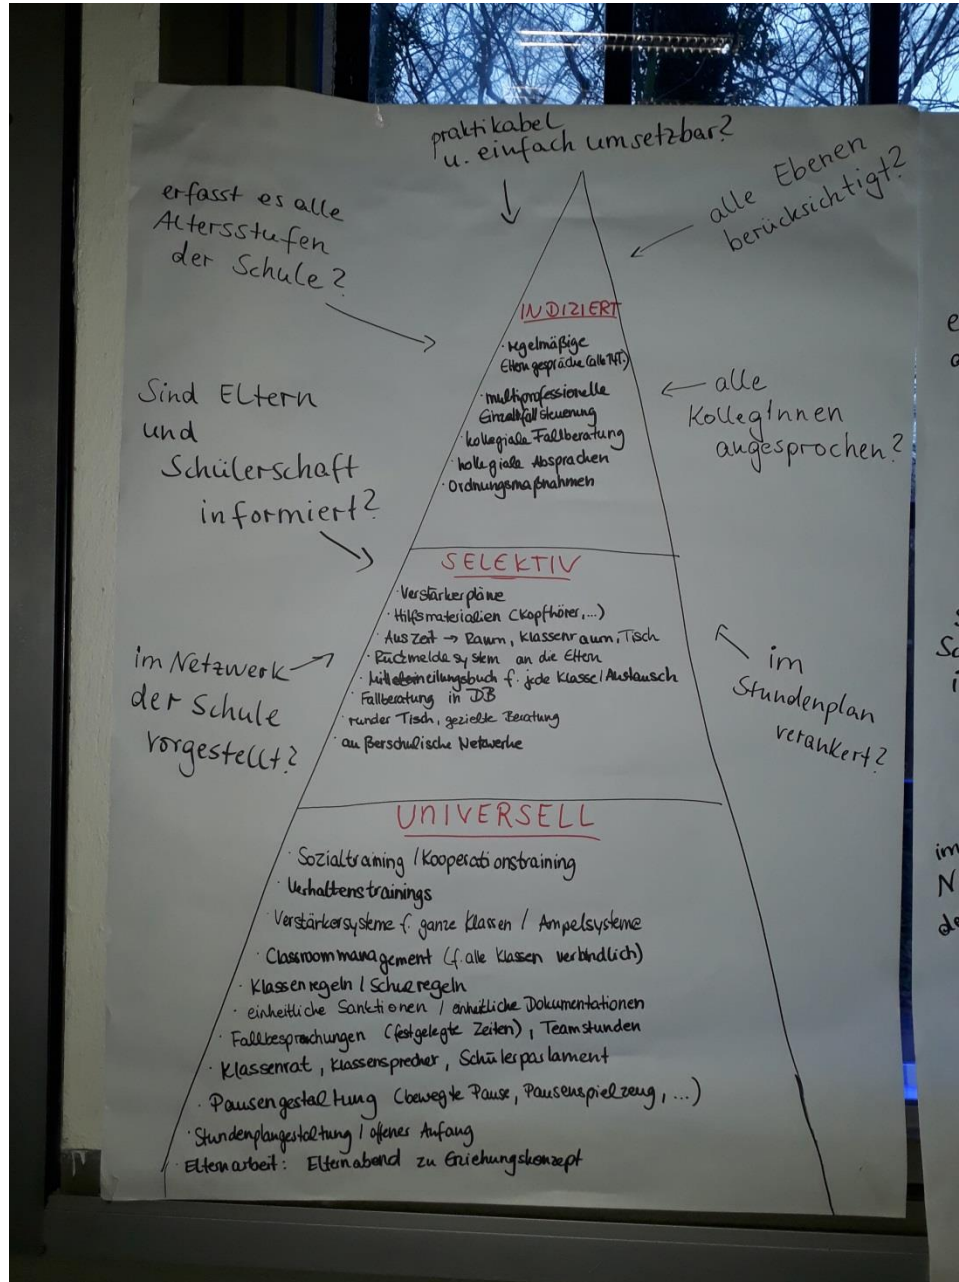 praktikabel
u. einfach umsetzbar?
erfasst es alle
Altersstufen
der Schule?
alle Ebenen
berücksichtigt?
Sind Eltern
und
Schülerschaft
informiert?
alle
KollegInnen
angesprochen?
im Netzwerk
der Schule
vorgestellt?
im
Stundenplan
verankert?
INDIZIERT
· regelmäßige
Elterngespräche (alle
· multiprofessionelle
Einzelfallsteuerung
· kollegiale Fallberatung
· kollegiale Absprachen
· Ordnungsmaßnahmen
SELEKTIV
· Verstärkerpläne
· Hilfsmaterialien (Kopfhörer,...)
· Auszeit → Raum, Klassenraum, Tisch
· Rückmeldesystem an die Eltern
· Mitteilungsbuch f. jede Klasse / Austausch
· Fallberatung in DB
· runder Tisch, gezielte Beratung
· außerschulische Netzwerke
UNIVERSELL
· Sozialtraining / Kooperationstraining
· Verhaltenstrainings
· Verstärkersysteme f. ganze Klassen / Ampelsysteme
· Classroommanagement (f. alle Klassen verbindlich)
· Klassenregeln / Schulregeln
· einheitliche Sanktionen / einheitliche Dokumentationen
· Fallbesprechungen (festgelegte Zeiten), Teamstunden
· Klassenrat, Klassensprecher, Schülerparlament
· Pausengestaltung (bewegte Pause, Pausenspielzeug, ...)
· Stundenplangestaltung / offener Anfang
· Elternarbeit: Elternabend zu Erziehungskonzept